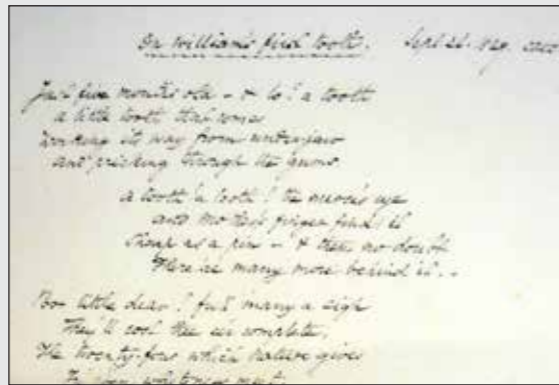 On William's first tooth. Sept 21.
Just five months old - & lo! a tooth
a little tooth that comes
Working its way from under jaw
and pricking through the gums.
a tooth a tooth! the nurse's eye
and mother's finger finds it
Sharp as a pin - & then no doubt
There are many more behind it. -
Poor little dear! full many a sigh
They'll cost thee ere complete,
The twenty-four which nature gives